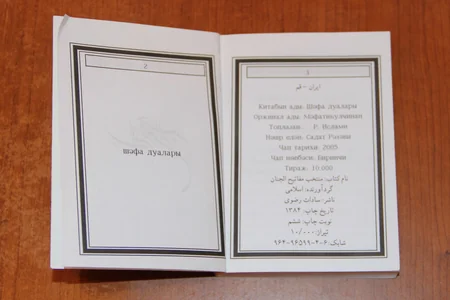 2
шафа дуалары
1
ایران - قم
Китабын ады: Шафа дуалары
Оржинал ады: Мафатиһулчинан
Топлајан: Р. Ислами
Нашр едән: Садат Рәзәви
Чап тарихи: 2005
Чап нөвбәси: Биринҹи
Тираж: 10 000
نام کتاب: منتخب مفاتیح الجنان
گردآورنده: اسلامی
ناشر: سادات رضوی
تاریخ چاپ: ۱۳۸۴
نوبت چاپ: ششم
تیراژ: ۱۰/۰۰۰
شابک: ۶-۲-۹۶۵۹۹-۹۶۴